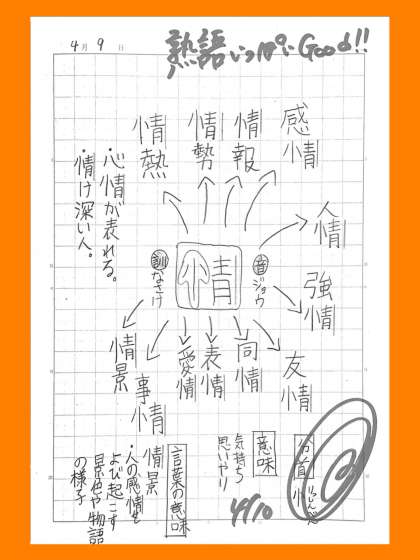 4月9日
熟語いっぱいGood!!
感情
情報
情勢
情熱
人情
強情
友情
同情
表情
愛情
事情
情景
情
音
ジョウ
訓
なさけ
・心情が表れる。
・情け深い人。
部首
忄
りっしんべん
意味
気持ち
思いやり
言葉の意味
情景
・人の感情を
よび起こす
景色や物語
の様子
4/10